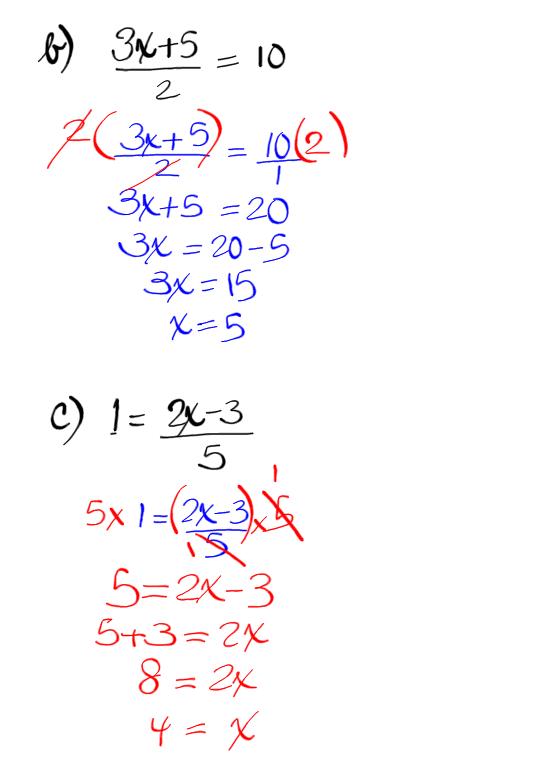 b) (3x+5)/2 = 10
2((3x+5)/2) = 10/1(2)
3x+5 = 20
3x = 20-5
3x = 15
x = 5
c) 1 = (2x-3)/5
5x 1 = ((2x-3)/5) x 5 1 1
5 = 2x-3
5+3 = 2x
8 = 2x
4 = x